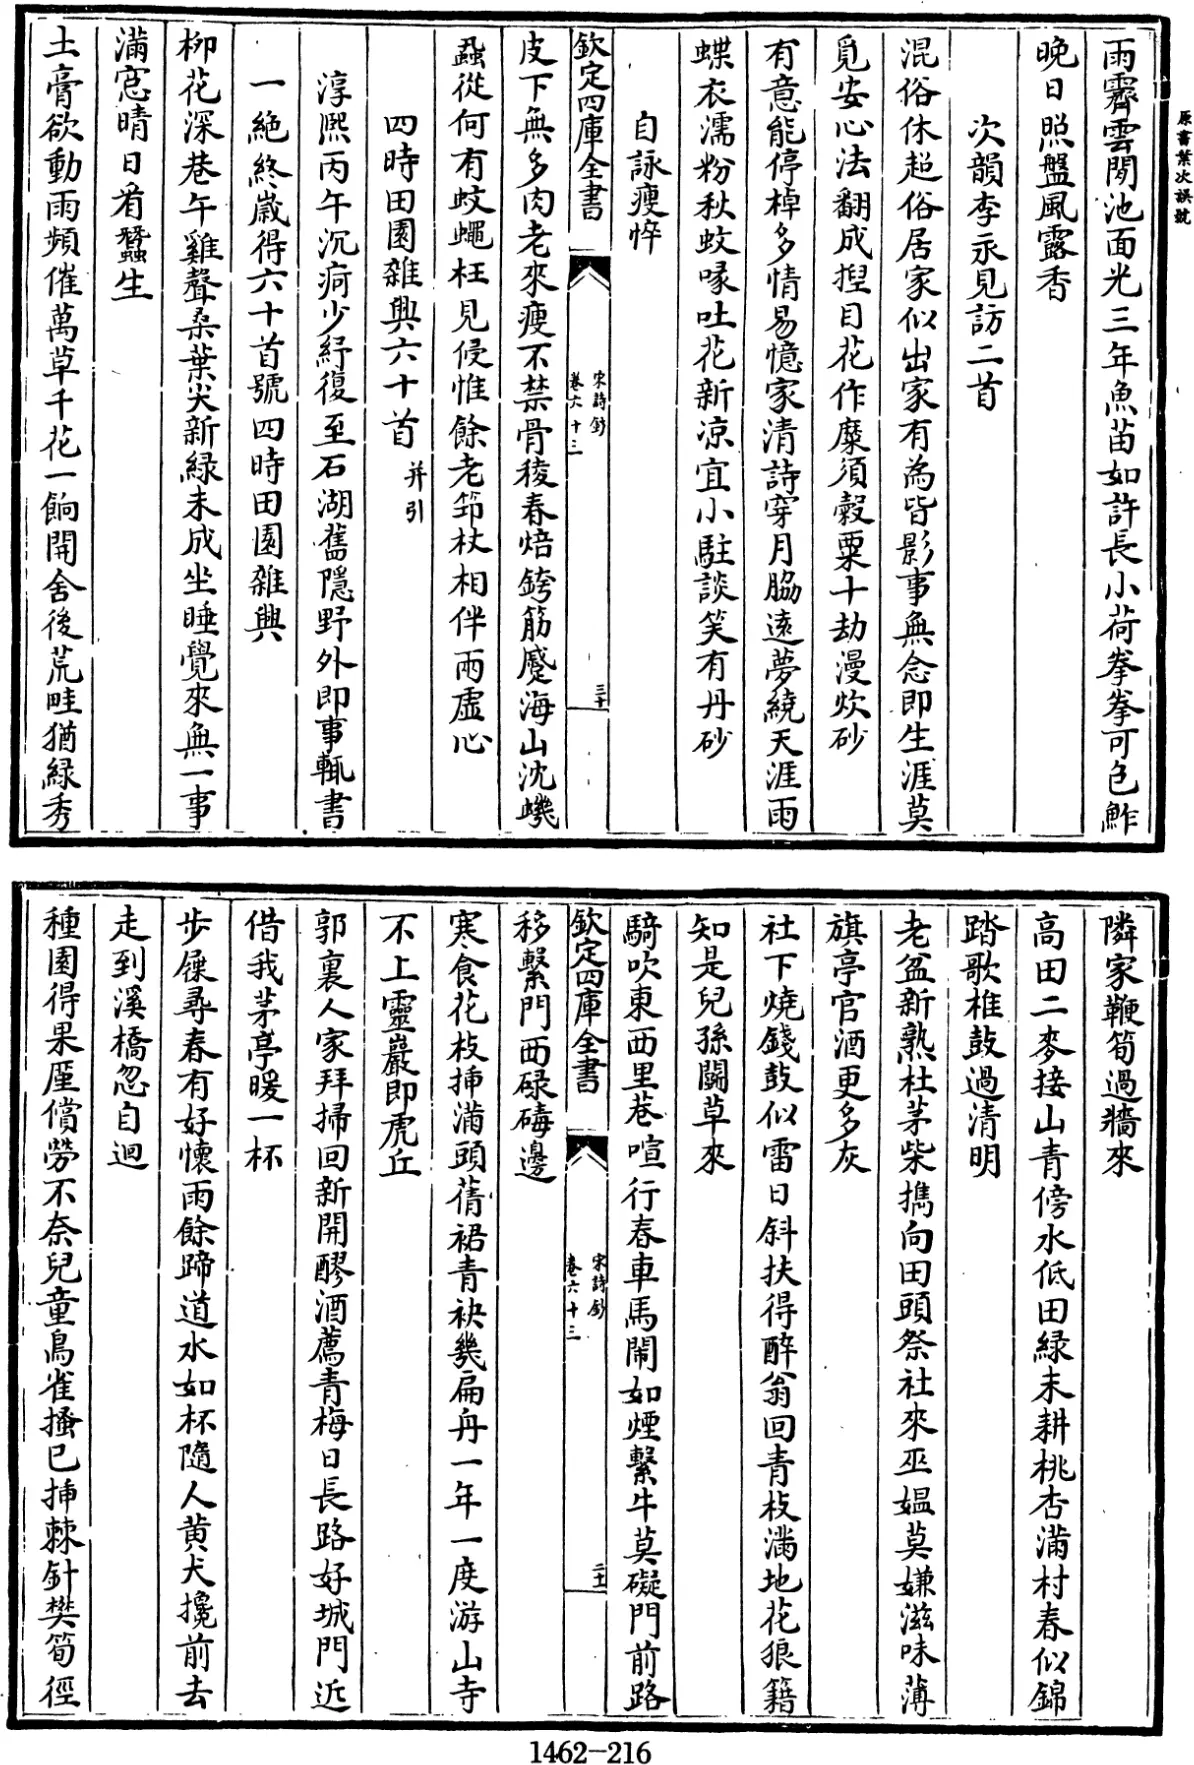 原書葉次誤號
雨霽雲閒池面光三年魚苗如許長小荷拳拳可包鮓
晚日照盤風露香
次韻李永見訪二首
混俗休超俗居家似出家有為皆影事無念即生涯莫
覓安心法翻成揑目花作麋須穀粟十劫漫炊砂
有意能停棹多情易憶家清詩穿月脇遠夢繞天涯雨
蝶衣濡粉秋蚊喙吐花新凉宜小駐談笑有丹砂
自詠瘦悴
欽定四庫全書
宋詩鈔
卷六十三
三十
皮下無多肉老來瘦不禁骨稜春焙銙筋蹙海山沈蟣
蝨從何有蚊蠅枉見侵惟餘老筇杖相伴兩虛心
四時田園雜興六十首并引
淳熙丙午沉痾少紓復至石湖舊隱野外即事輒書
一絶終歲得六十首號四時田園雜興
柳花深巷午雞聲桑葉尖新緑未成坐睡覺來無一事
滿窓晴日看蠶生
土膏欲動雨頻催萬草千花一餉開舍後荒畦猶緑秀
隣家鞭筍過牆來
高田二麥接山青傍水低田緑未耕桃杏滿村春似錦
踏歌椎鼓過清明
老盆新熟杜茅柴擕向田頭祭社來巫媼莫嫌滋味薄
旗亭官酒更多灰
社下燒錢鼓似雷日斜扶得醉翁回青枝滿地花狼籍
知是兒孫鬬草來
騎吹東西里巷喧行春車馬閙如煙繫牛莫礙門前路
移繫門西碌碡邊
欽定四庫全書
宋詩鈔
卷六十三
三十一
寒食花枝揷滿頭蒨裙青袂幾扁舟一年一度游山寺
不上靈巖即虎丘
郭裏人家拜掃回新開醪酒薦青梅日長路好城門近
借我茅亭暖一杯
步屧尋春有好懷雨餘蹄道水如杯隨人黄犬攙前去
走到溪橋忽自迴
種園得果廑償勞不奈兒童鳥雀搔已揷棘針樊筍徑
1462-216